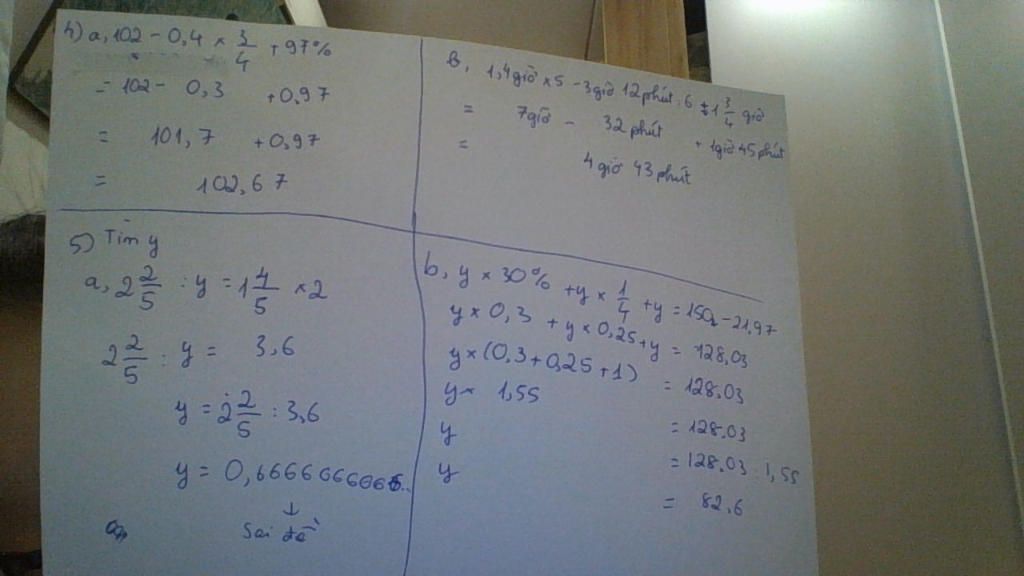 4) a, 102 - 0,4 × 3/4 + 97%
= 102 - 0,3 + 0,97
= 101,7 + 0,97
= 102,67
b, 1,4 giờ × 5 - 3 giờ 12 phút : 6 + 1 3/4 giờ
= 7 giờ - 32 phút + 1 giờ 45 phút
= 4 giờ 43 phút
5) Tìm y
a, 2 2/5 : y = 1 4/5 × 2
2 2/5 : y = 3,6
y = 2 2/5 : 3,6
y = 0,6666666666...
↓
Sai đề
b, y × 30% + y × 1/4 + y = 150 - 21,97
y × 0,3 + y × 0,25 + y = 128,03
y × (0,3 + 0,25 + 1) = 128,03
y × 1,55 = 128,03
y = 128,03 : 1,55
y = 82,6